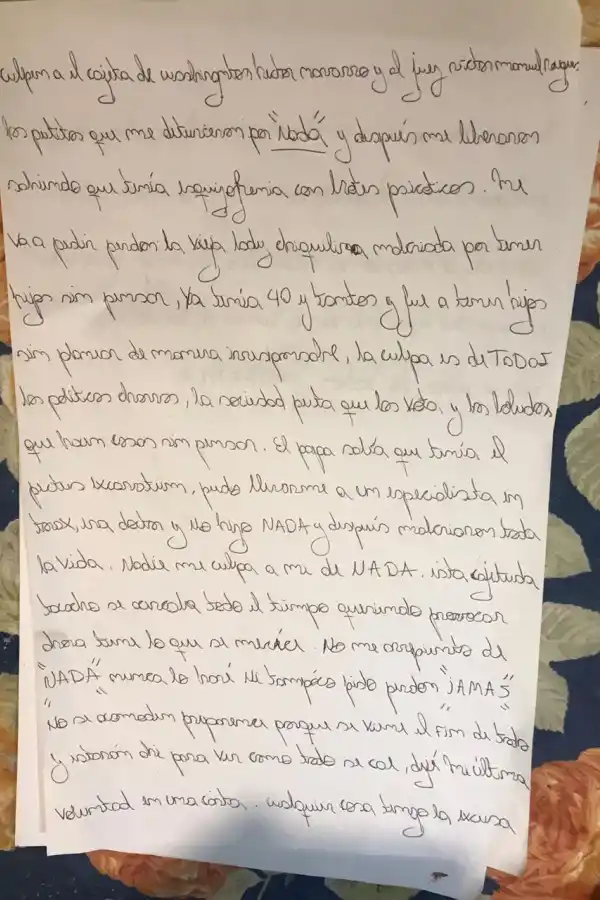 culpan a el cajita de washington hector navarro y al juez victor manuel
los putitos que me detuvieron por "NADA" y después me liberaron
sabiendo que tenía esquizofrenia con brotes psicóticos. Me
va a pedir perdon la vieja lady chiquilina malcriada por tener
hijos sin pensar, Ya tenía 40 y tantos y fue a tener hijos
sin planear de manera irresponsable, la culpa es de TODOS
los politicos chorros, la sociedad puta que los vota, y los boludos
que hacen cosas sin pensar. El papa sabía que tenía el
pectus excavatum, pudo llevarme a un especialista en
torax, era doctor y No hizo NADA y después malcriaron toda
la vida. Nadie me culpa a mi de NADA. esta cajetuda
se cansaba todo el tiempo queriendo provocar
ahora tiene lo que se merece. No me arrepiento de
"NADA" nunca lo haré Ni tampoco pido perdon "JAMAS"
"No se acomoden" porque se viene el Fin de todo
y estarán ahí para ver como todo se cae, dejé mi última
voluntad en una carta. cualquier cosa tengo la excusa